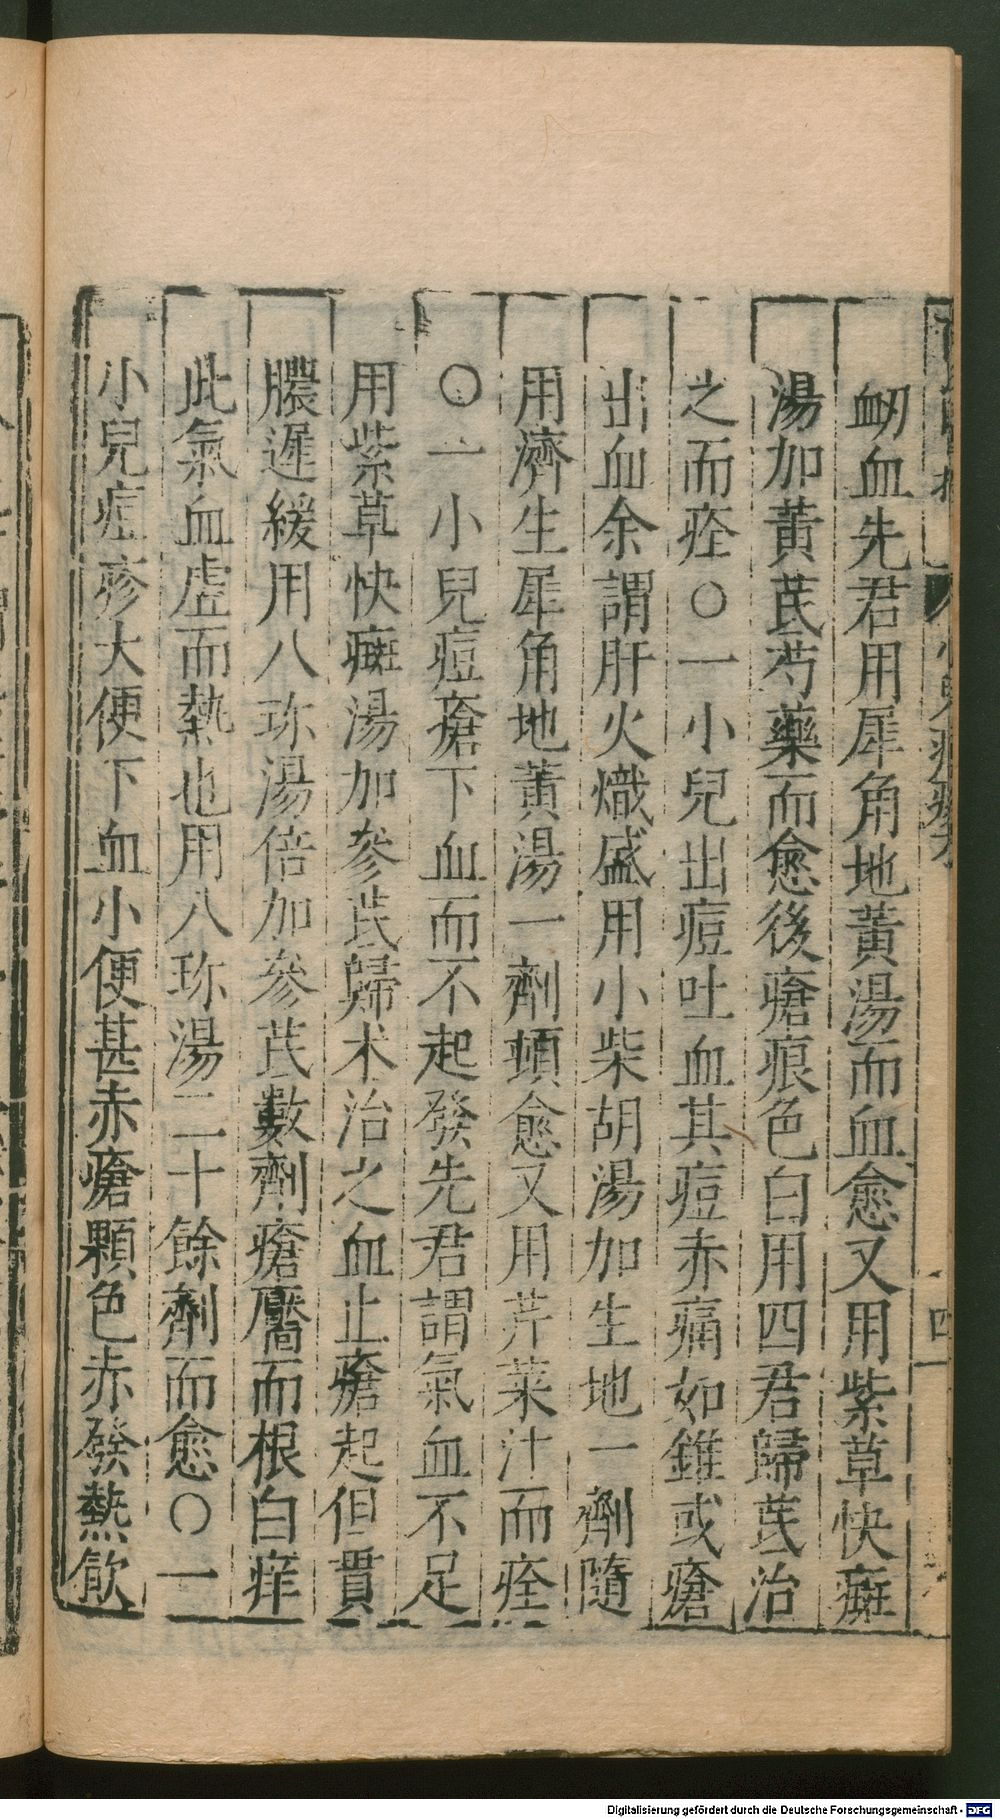 衂血先君用犀角地黃湯而血愈又用紫草快癍
湯加黃芪芍藥而愈後瘡痕色白用四君歸芪治
之而痊○一小兒出痘吐血其痘赤痛如錐或瘡
出血余謂肝火熾盛用小柴胡湯加生地一劑隨
用濟生犀角地黃湯一劑頓愈又用芹菜汁而痊
○一小兒痘瘡下血而不起發先君謂氣血不足
用紫草快癍湯加參芪歸朮治之血止瘡起但貫
膿遲緩用八珎湯倍加參芪數劑瘡靨而根白痒
此氣血虛而熱也用八珎湯二十餘劑而愈○一
小兒痘疹大便下血小便甚赤瘡顆色赤發熱飲
四一
Digitalisierung gefördert durch die Deutsche Forschungsgemeinschaft - DFG